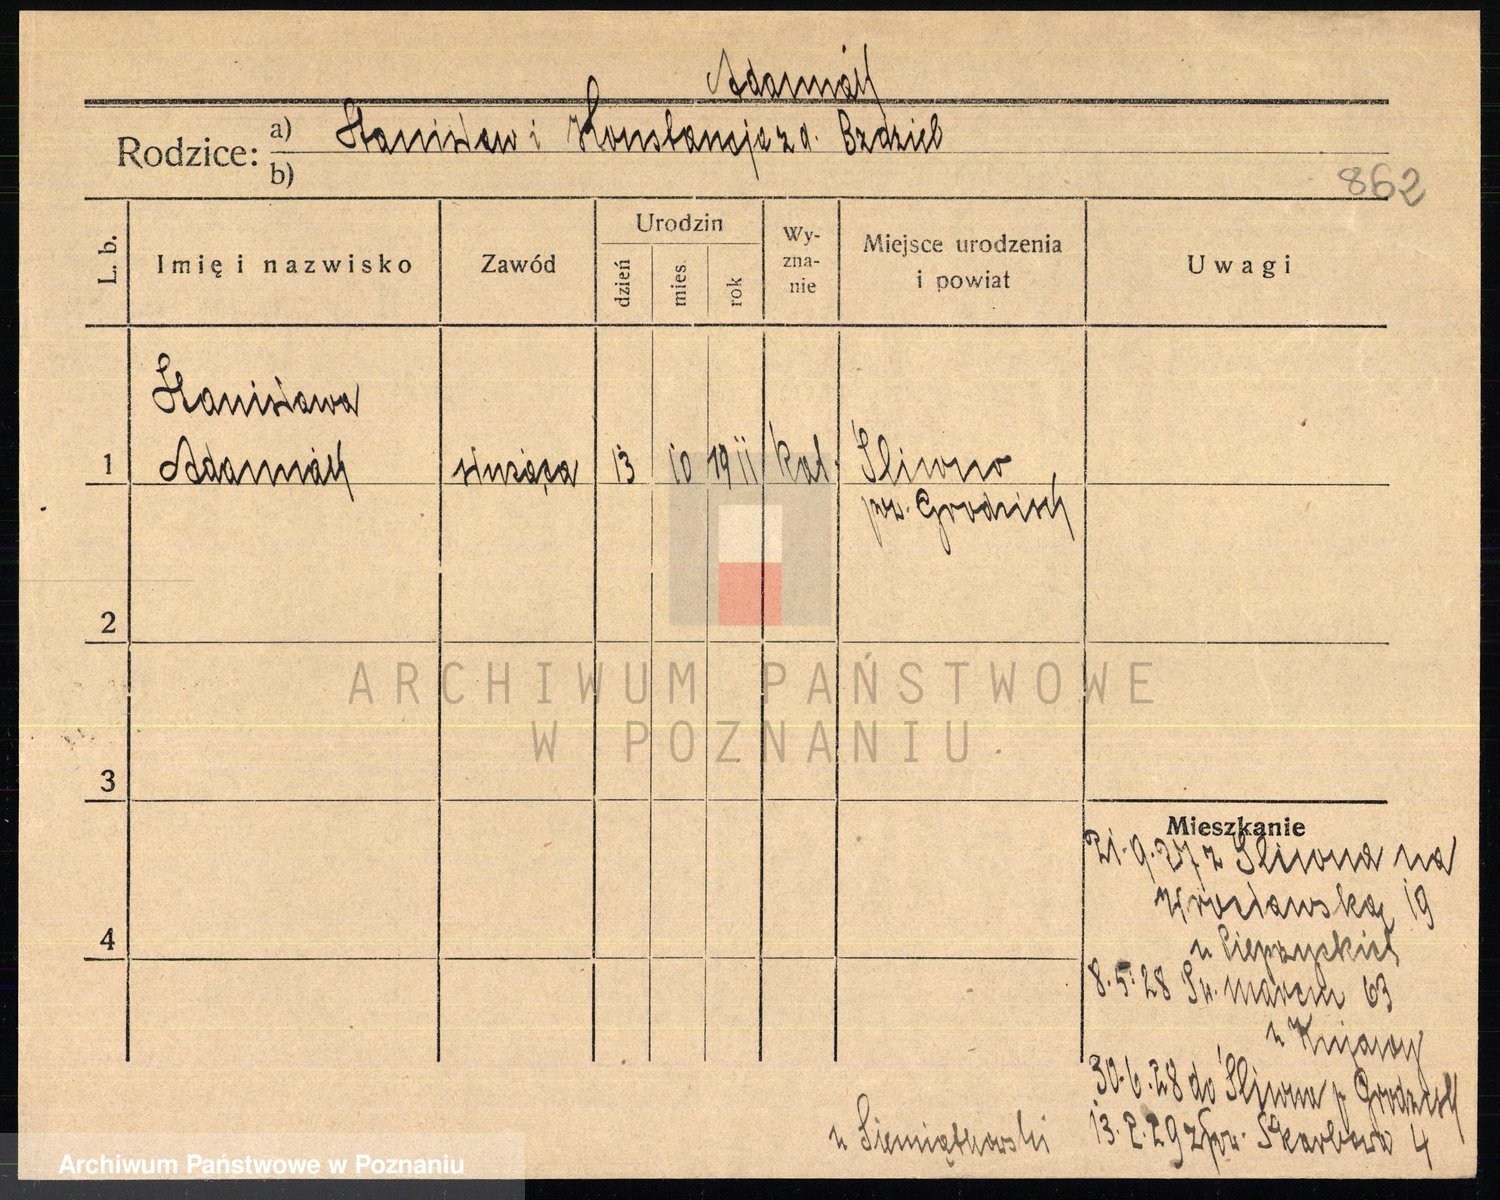 Adamiak
Rodzice: a) Stanisław i Konstancja z d. Bździel
b)
862
L. b.
Imię i nazwisko
Zawód
Urodzin
dzień
mies.
rok
Wy-
zna-
nie
Miejsce urodzenia
i powiat
Uwagi
Stanisława
1 Adamiak służąca 13 10 1911 kat. Śliwno
pow. Grodzisk
2
ARCHIWUM PAŃSTWOWE
W POZNANIU
3
Mieszkanie
21.9.27 z Śliwna na
Wrocławską 19
4
u
8.5.28 Św. Marcin 63
u
30.6.28 do Śliwna p. Grodzisk
13.2.29 zpow. Skarbowa 4
u Siemiątkowski
Archiwum Państwowe w Poznaniu